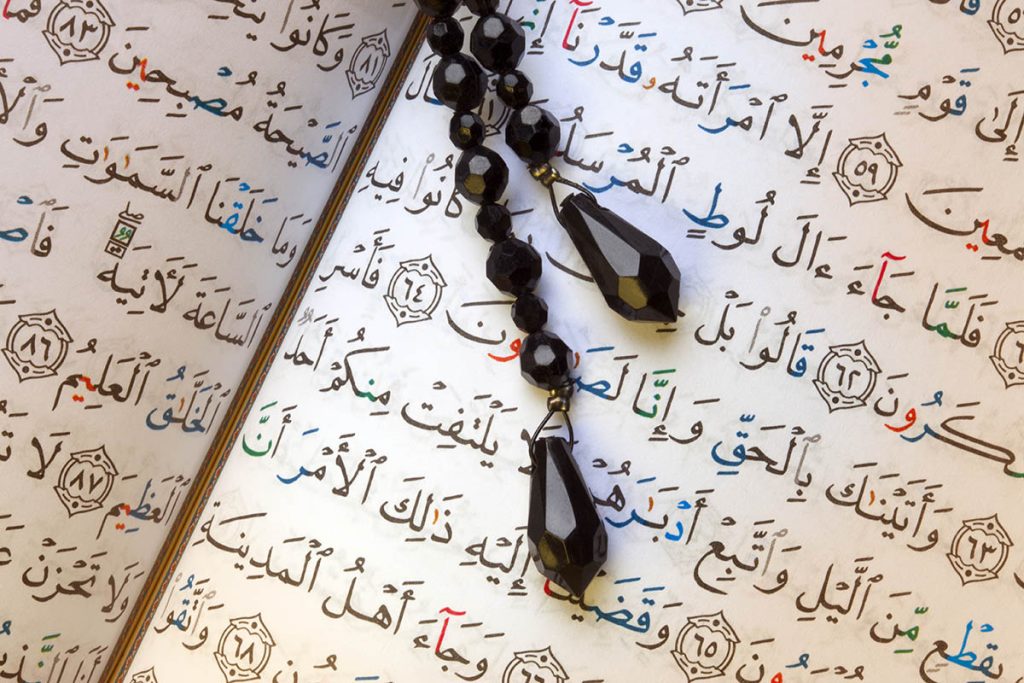 إِلَىٰ قَوْمٍ مُّجْرِمِينَ
ـمَعِينَ ٥٩ إِلَّا ٱمْرَأَتَهُۥ قَدَّرْنَآ
فَلَمَّا جَآءَ ءَالَ لُوطٍ ٱلْمُرْسَلُـ ٦١ قَالَ
ـكَرُونَ ٦٢ قَالُوا۟ بَلْ كَانُوا۟ فِيهِ
٦٣ وَأَتَيْنَٰكَ بِٱلْحَقِّ وَإِنَّا لَصَـ ـونَ ٦٤ فَأَسْرِ
بِقِطْعٍ مِّنَ ٱلَّيْلِ وَٱتَّبِعْ أَدْبَٰرَهُمْ يَلْتَفِتْ مِنكُمْ أَحَدٌ
ـونَ ٦٥ وَقَضَيْـ إِلَيْهِ ذَٰلِكَ ٱلْأَمْرَ أَنَّ
وَجَآءَ أَهْلُ ٱلْمَدِينَةِ
ـونِ ٦٨ وَٱتَّقُوا۟
٨١ وَكَانُوا۟
ٱلصَّيْحَةُ مُصْبِحِينَ ٨٣ فَمَا
وَمَا خَلَقْنَا ٱلسَّمَٰوَٰتِ وَٱلْأَ
ٱلسَّاعَةَ لَأٓتِيَةٌ فَٱصْـ
ٱلْخَلَّٰقُ ٱلْعَلِيمُ ٨٦
ٱلْعَظِيمَ ٨٧ لَا
وَلَا تَحْزَنْ
أَنَا ٱلنَّذِيـ